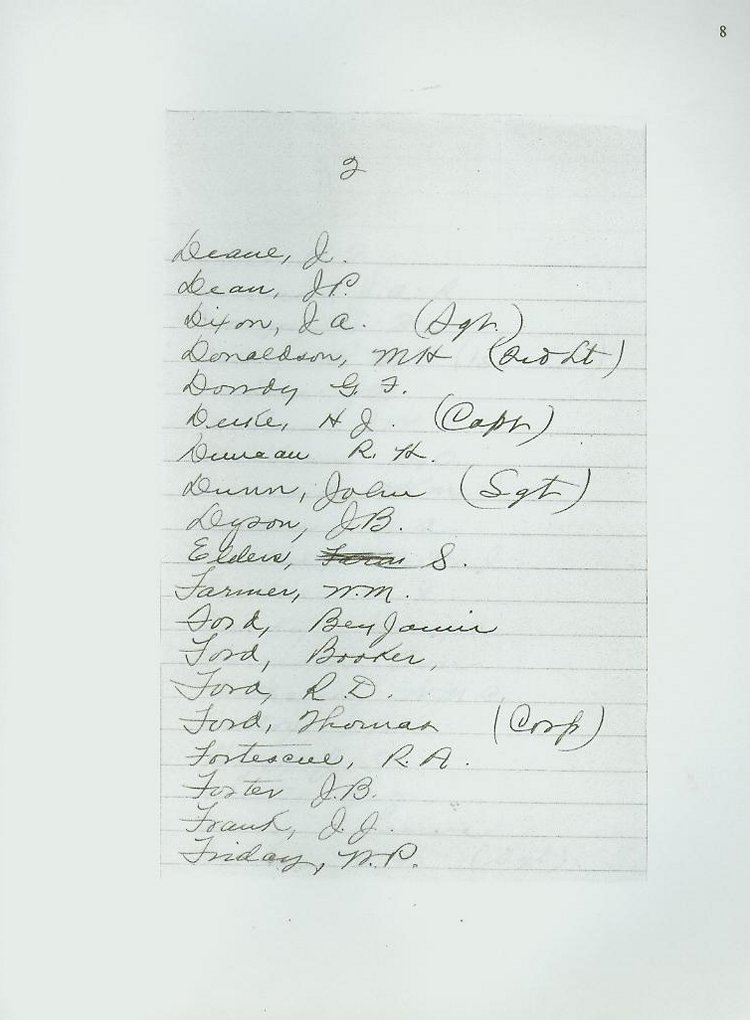 8
2
Deane, J.
Dean, J.P.
Dixon, J.A. (Sgt.)
Donaldson, MH (2nd Lt)
Dowdy G. F.
Duke, H J. (Capt)
Duncan R. H.
Dunn, John (Sgt)
Dyson, J.B.
Elders, S.
Farmer, W.M.
Ford, Benjamin
Ford, Booker,
Ford, R.D.
Ford, Thomas (Corp)
Fortescue, R.A.
Foster J.B.
Frank, J.J.
Friday, W.P.